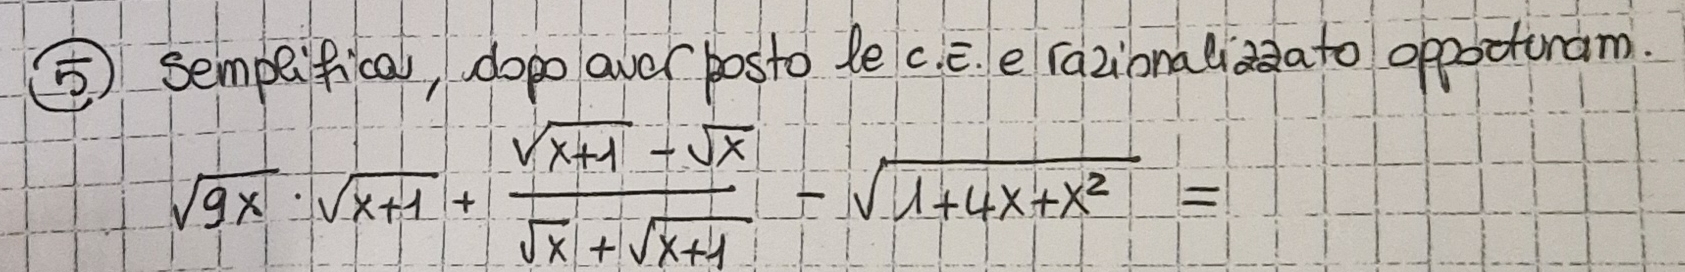 5 Semplifica, dopo aver posto le C.E. e razionalizzato opportunam.
√9x · √x+1 + (√x+1 - √x)/(√x + √x+1) - √1+4x+x² =